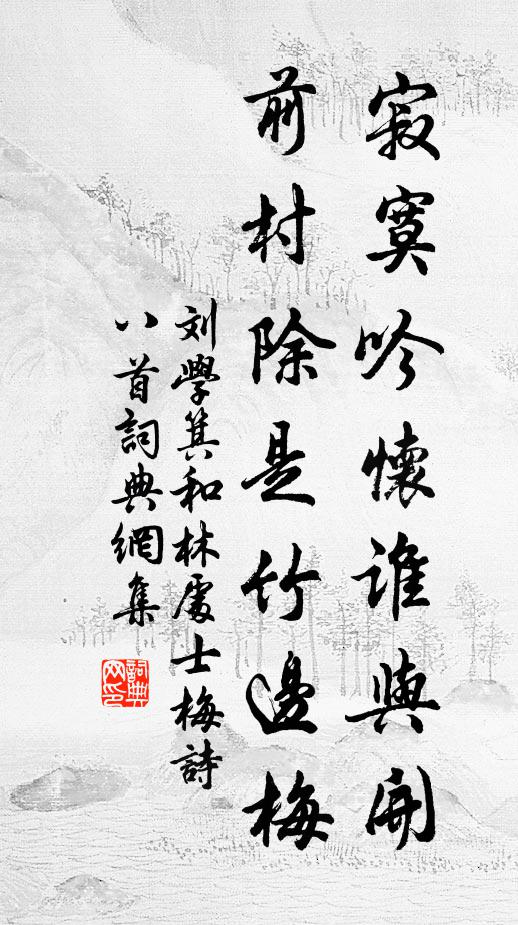 寂寞吟懷誰與開
前村除是竹邊梅
刘學箕和林處士梅詩
八首詞典網集
詞典网印